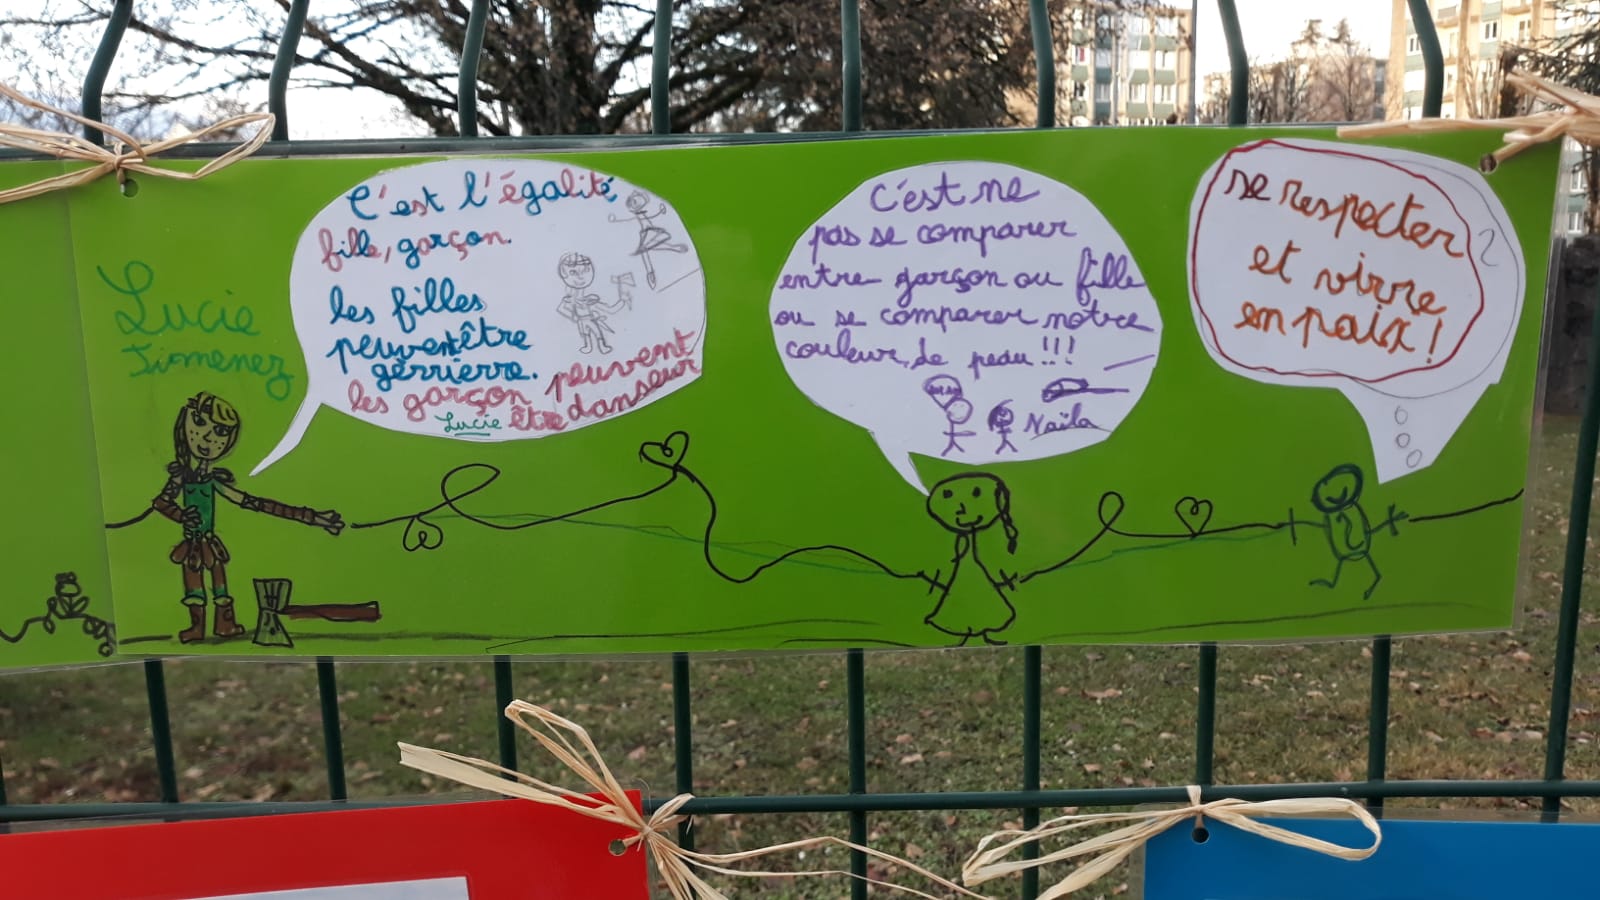 Lucie
Jimenez
C'est l'égalité
fille, garçon.
les filles
peuvent être
gérrierre.
les garçon peuvent
être danseur
Lucie
C'est ne
pas se comparer
entre garçon ou fille
ou se comparer notre
couleur de peau !!!
Naïla
se respecter
et vivre
en paix !